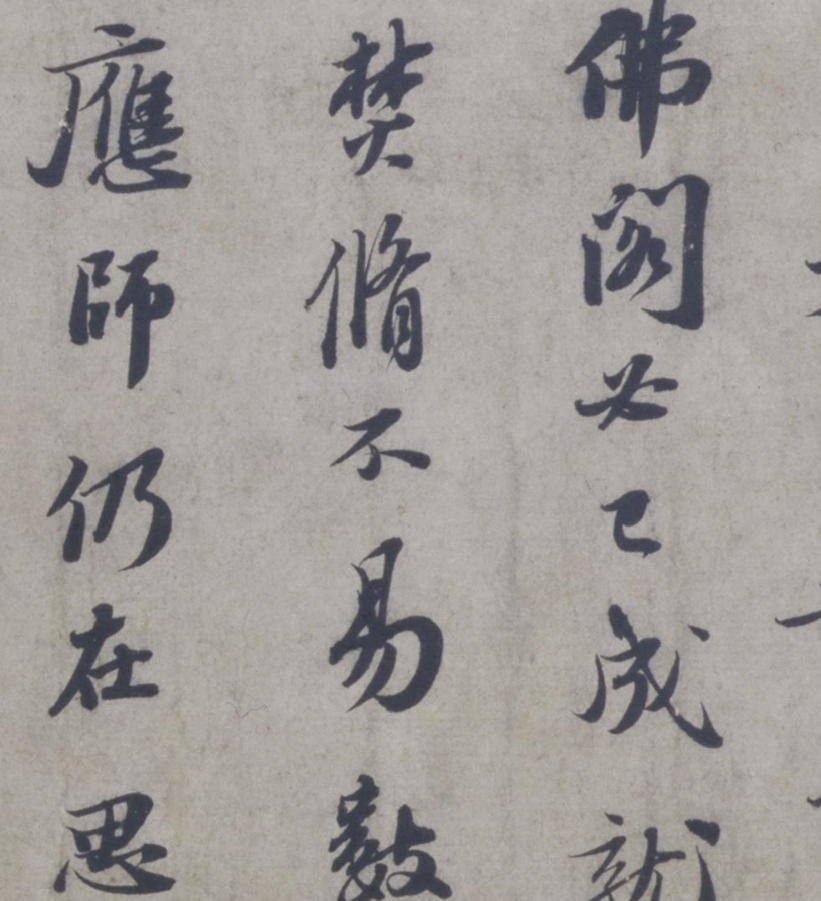 佛閣必已成就
焚脩不易數
應師仍在思